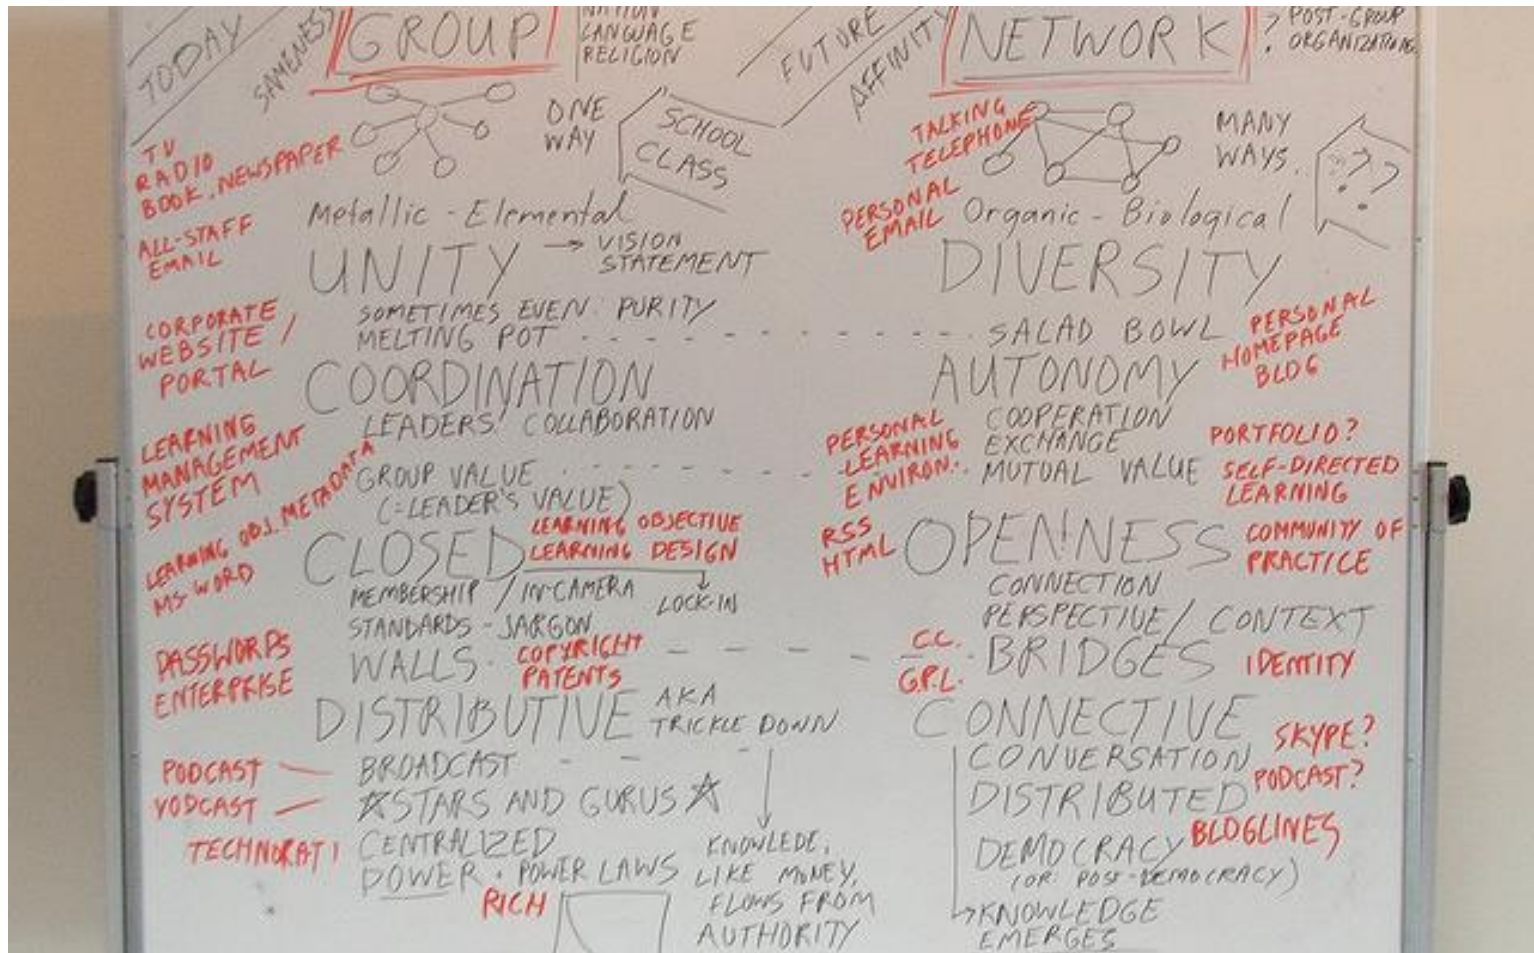 TODAY
SAMENESS
GROUP
NATION
LANGUAGE
RELIGION
ONE
WAY
SCHOOL
CLASS
TV
RADIO
BOOK. NEWSPAPER
ALL-STAFF
EMAIL
Metallic - Elemental
UNITY → VISION
STATEMENT
SOMETIMES EVEN PURITY
MELTING POT
CORPORATE
WEBSITE /
PORTAL
COORDINATION
LEADERS' COLLABORATION
LEARNING
MANAGEMENT
SYSTEM
GROUP VALUE
(=LEADER'S VALUE)
LEARNING OBJ. METADATA
MS-WORD
CLOSED
LEARNING OBJECTIVE
LEARNING DESIGN
MEMBERSHIP / IN-CAMERA
LOCK-IN
STANDARDS - JARGON
PASSWORDS
ENTERPRISE
WALLS
COPYRIGHT
PATENTS
DISTRIBUTIVE AKA
TRICKLE DOWN
PODCAST
VODCAST
TECHNORATI
BROADCAST
☆STARS AND GURUS☆
CENTRALIZED
POWER · POWER LAWS
RICH
KNOWLEDE,
LIKE MONEY,
FLOWS FROM
AUTHORITY
FUTURE
AFFINITY
NETWORK
? POST-GROUP
ORGANIZATIONS
TALKING
TELEPHONE
MANY
WAYS.
???
PERSONAL
EMAIL
Organic - Biological
DIVERSITY
SALAD BOWL
PERSONAL
HOMEPAGE
BLOG
AUTONOMY
COOPERATION
EXCHANGE
MUTUAL VALUE
PERSONAL
LEARNING
ENVIRON..
PORTFOLIO?
SELF-DIRECTED
LEARNING
RSS
HTML
OPENNESS
COMMUNITY OF
PRACTICE
CONNECTION
PERSPECTIVE / CONTEXT
C.C.
G.P.L.
BRIDGES
IDENTITY
CONNECTIVE
CONVERSATION
SKYPE?
PODCAST?
DISTRIBUTED
BLOGLINES
DEMOCRACY
(OR POST-DEMOCRACY)
→KNOWLEDGE
EMERGES